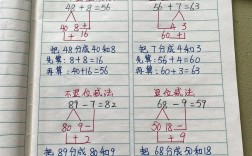 48 + 8 = 56
56 + 7 = 63
40 8
4 3
16
60
把48分成40和8
把7分成4和3
先算: 8+8=16
先算: 56+4=60
再算: 40+16=56
再算: 60+3=63
不退位减法
退位减法
89 - 7 = 82
68 - 9 = 59
80 9
50 18
2
9
把89分成80和9
把68分成50和18